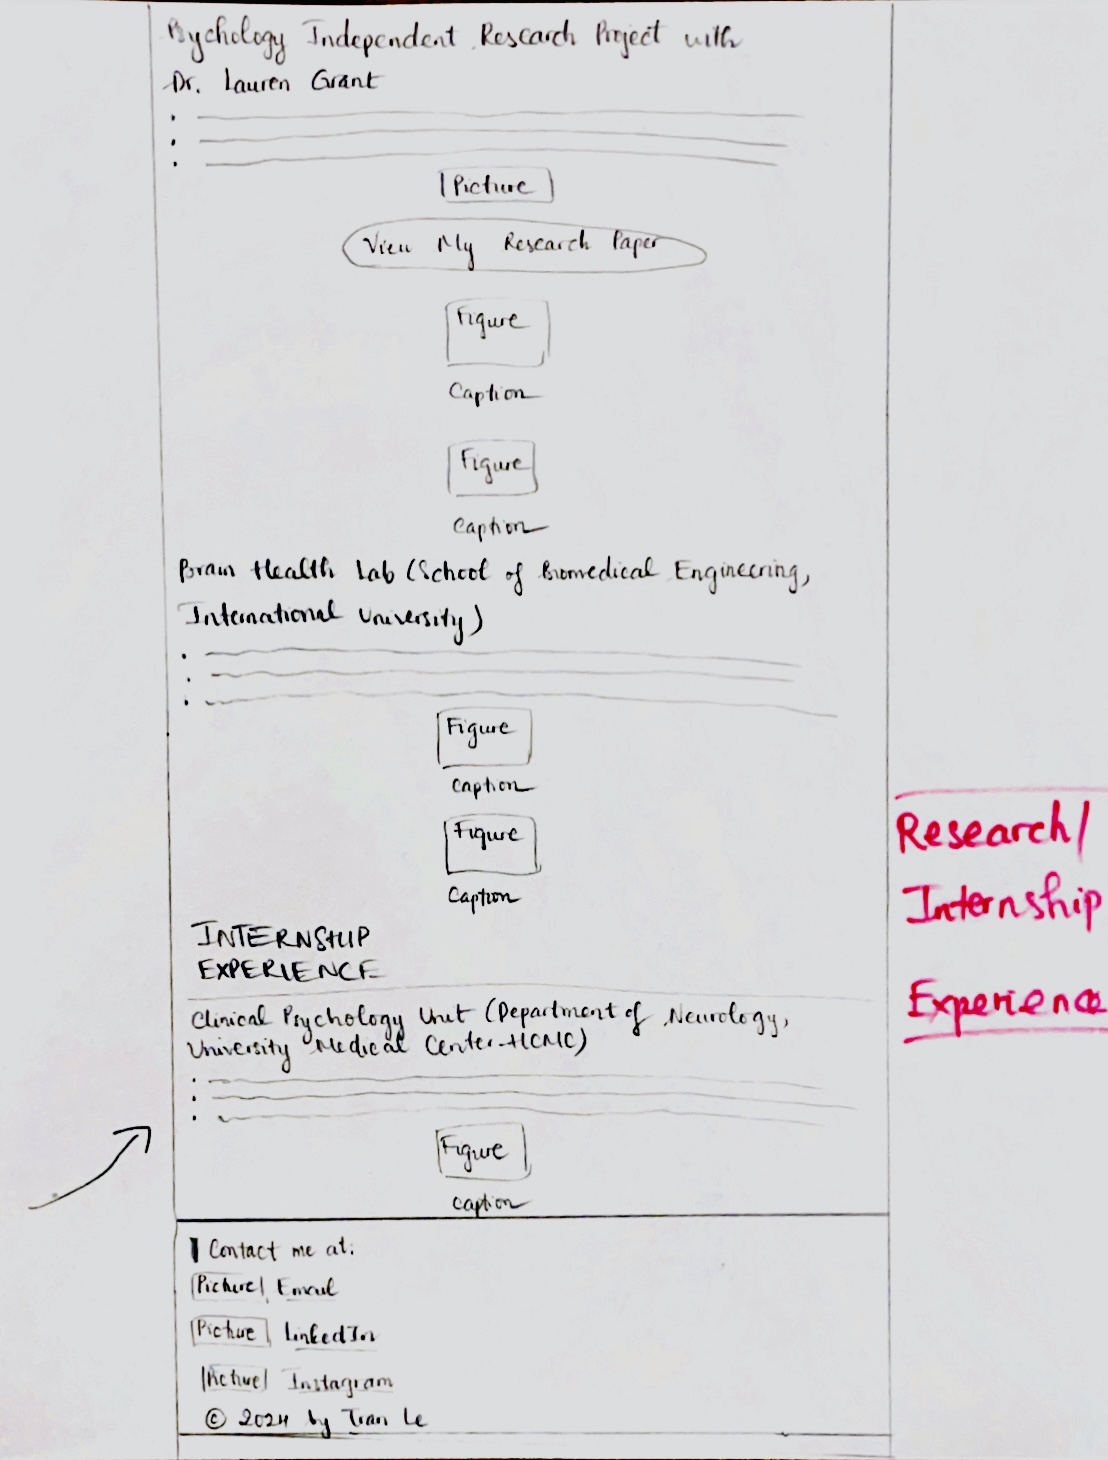 Psychology Independent Research Project with
Dr. Lauren Grant
Picture
View My Research Paper
Figure
Caption
Figure
Caption
Brain Health Lab (School of Biomedical Engineering,
International University)
Figure
Caption
Figure
Caption
INTERNSHIP
EXPERIENCE
Clinical Psychology Unit (Department of Neurology,
University Medical Center HCMC)
Figure
Caption
Contact me at:
Picture Email
Picture LinkedIn
Picture Instagram
© 2024 by Tran Le
Research/
Internship
Experience